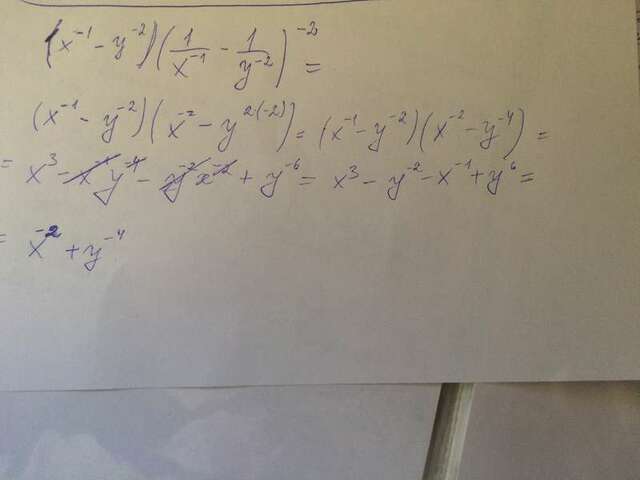 (x⁻¹ - y⁻²)(1/x⁻¹ - 1/y⁻²)⁻² =
(x⁻¹ - y⁻²)(x⁻² - y²⁽⁻²⁾) = (x⁻¹ - y⁻²)(x⁻² - y⁻⁴) =
= x³ - x⁻¹y⁻⁴ - y⁻²x⁻² + y⁻⁶ = x³ - y⁻² - x⁻¹ + y⁶ =
= x⁻² + y⁻⁴